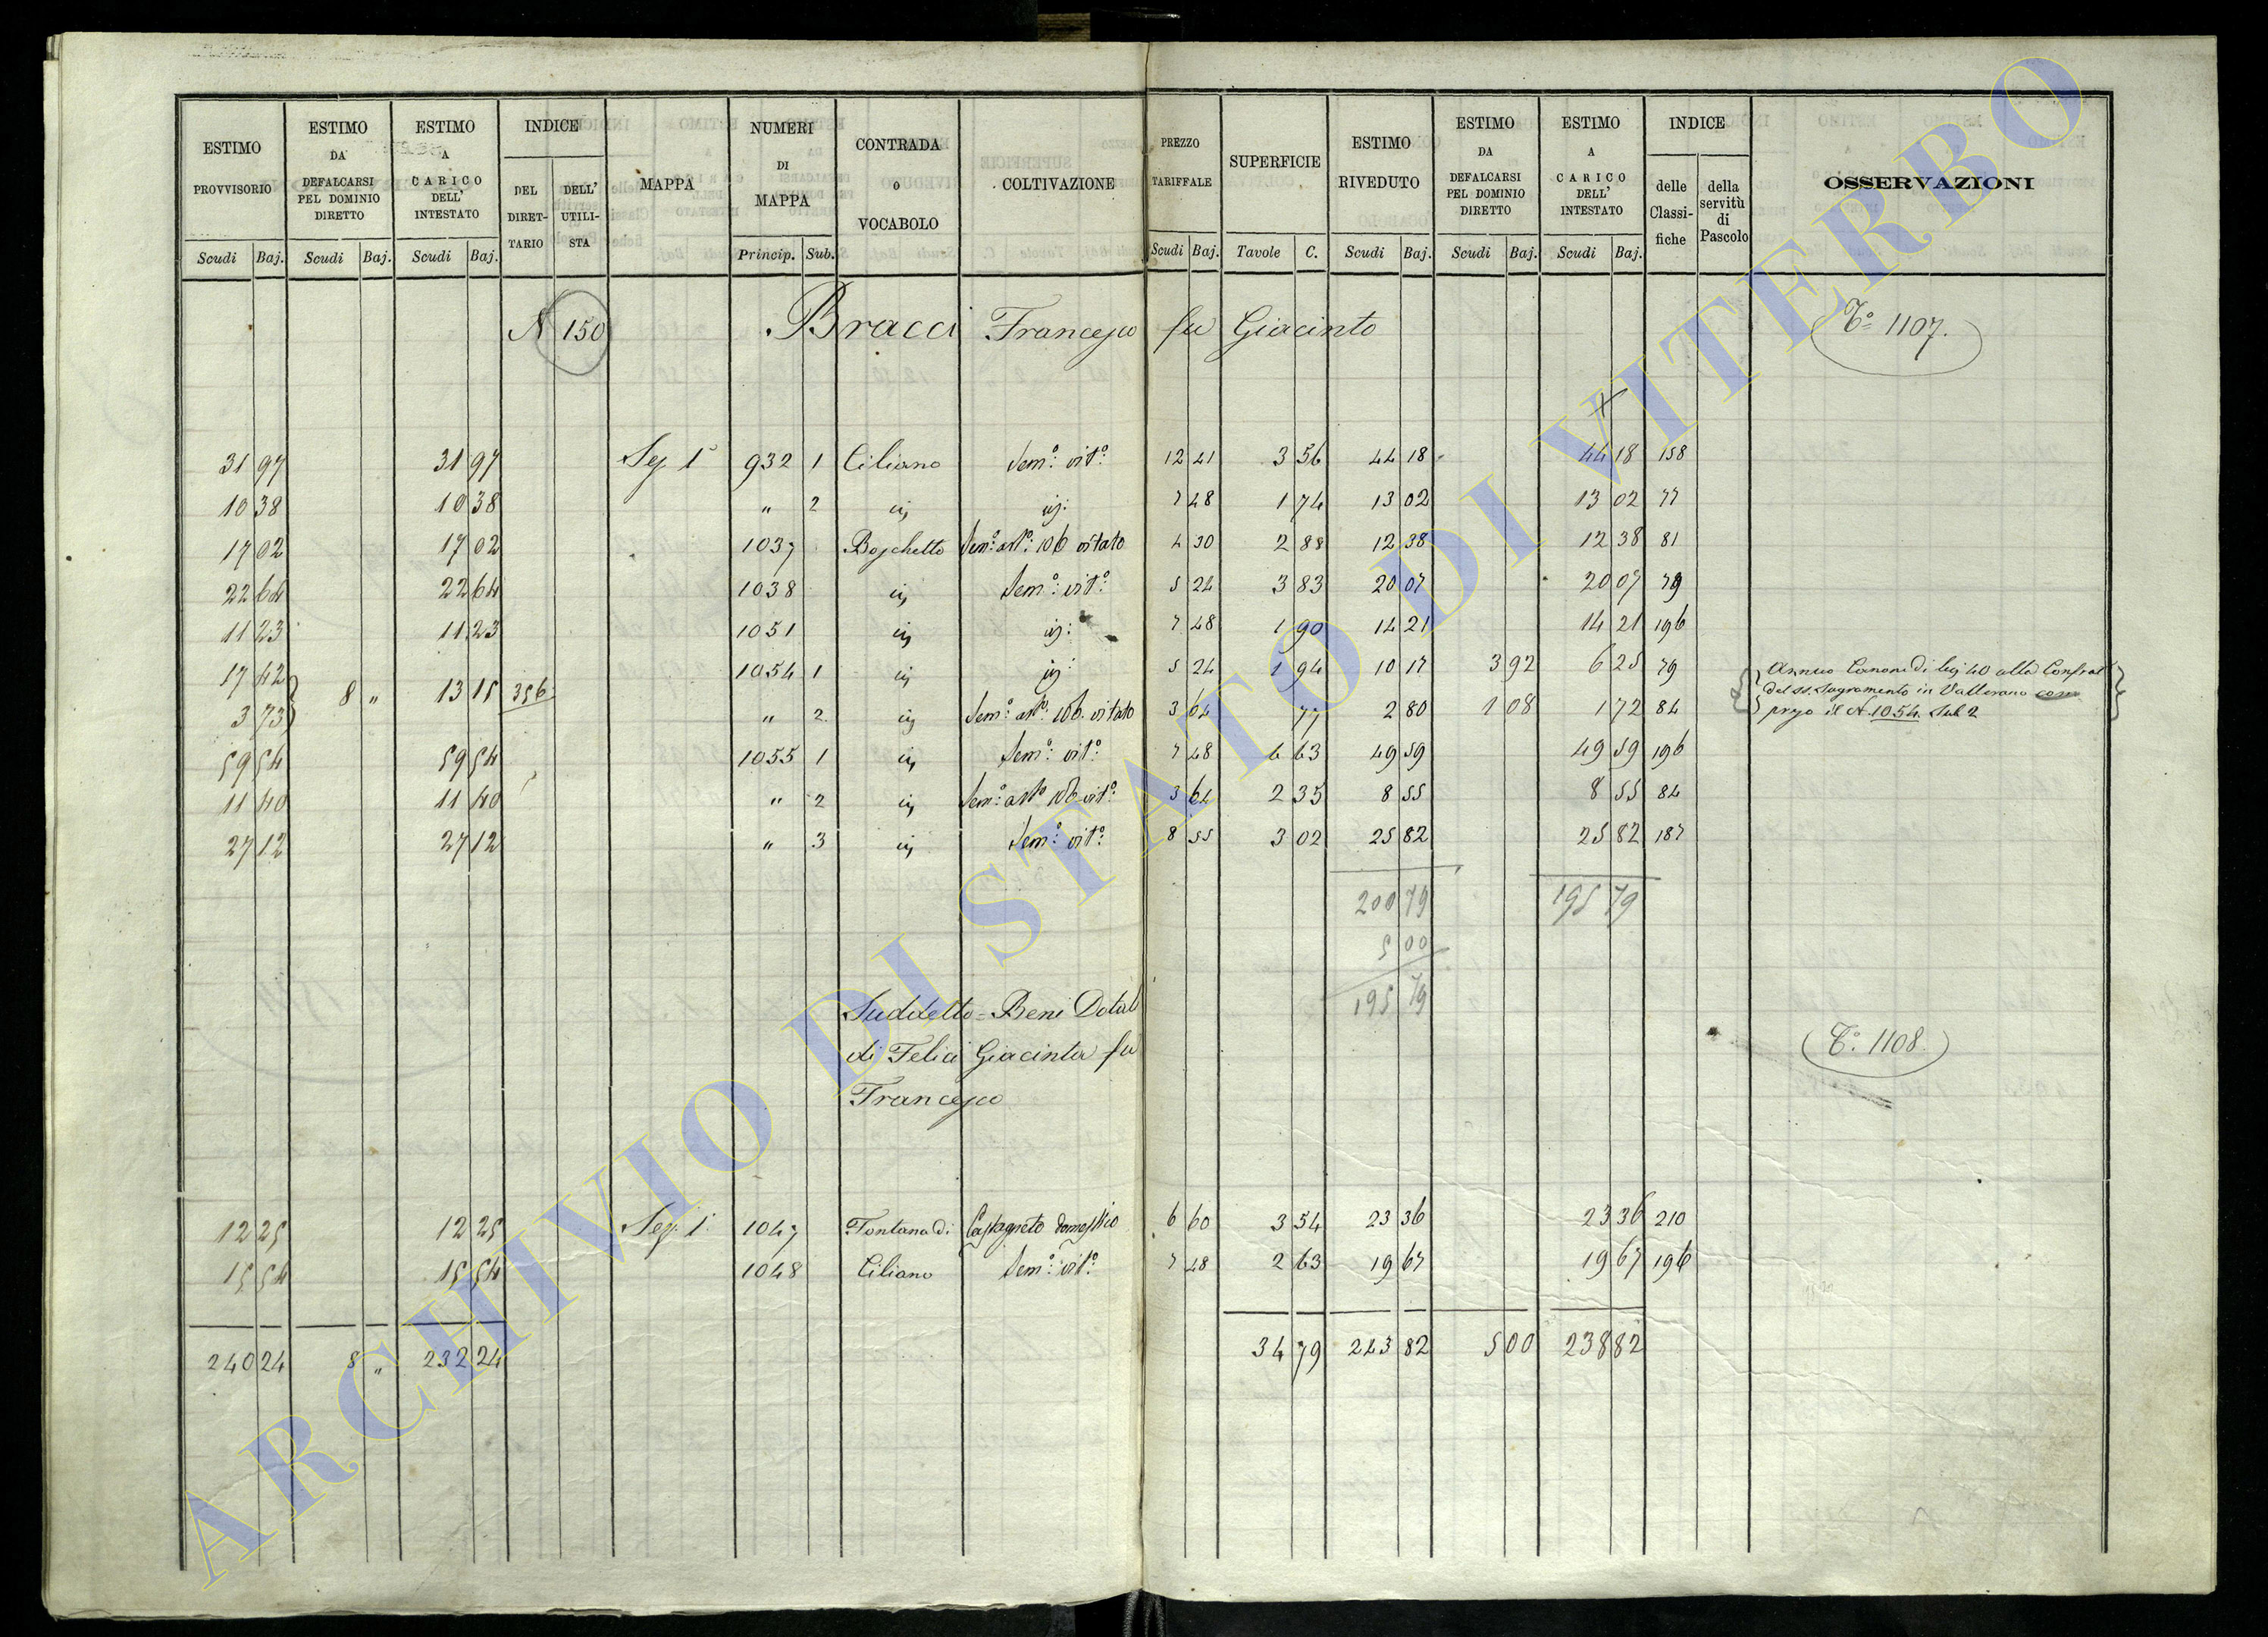 ESTIMO PROVVISORIO | ESTIMO DA DEFALCARSI PEL DOMINIO DIRETTO | ESTIMO A CARICO DELL' INTESTATO | INDICE | MAPPA | NUMERI DI MAPPA | CONTRADA O VOCABOLO | COLTIVAZIONE | PREZZO TARIFFALE | SUPERFICIE | ESTIMO RIVEDUTO | ESTIMO DA DEFALCARSI PEL DOMINIO DIRETTO | ESTIMO A CARICO DELL' INTESTATO | INDICE | OSSERVAZIONI
DEL DIRETTARIO | DELL' UTILISTA | delle Classifiche | della servitù di Pascolo
Scudi Baj. | Scudi Baj. | Scudi Baj. | Princip. Sub. | Scudi Baj. | Tavole C. | Scudi Baj. | Scudi Baj. | Scudi Baj.
N 150 Bracci Francesco fu Giacinto To 1107.
31 97 | 31 97 | Sez 1 | 932 | 1 | Ciliano | Sem:o vit:o | 12 41 | 3 56 | 44 18 | 44 18 | 158
10 38 | 10 38 | " | 2 | ij | ij: | 7 48 | 1 74 | 13 02 | 13 02 | 77
17 02 | 17 02 | 1037 | Boschetto | Sem:o vitato | 4 30 | 2 88 | 12 38 | 12 38 | 81
22 64 | 22 64 | 1038 | ij | Sem:o vit:o | 5 24 | 3 83 | 20 07 | 20 07 | 79
11 23 | 11 23 | 1051 | ij | ij: | 7 48 | 1 90 | 14 21 | 14 21 | 196
17 42 | 8 " | 13 15 | 356 | 1054 | 1 | ij | ij | 5 24 | 1 94 | 10 17 | 3 92 | 6 25 | 79 | Annuo Canone di baj 40 alla Confrat
3 73 | " | 2 | ij | Sem:o vitato | 3 64 | 77 | 2 80 | 1 08 | 1 72 | 84 | del SS. Sagramento in Vallerano com
preso il N. 1054. Sub 2
59 54 | 59 54 | 1055 | 1 | ij | Sem:o vit:o | 7 48 | 6 63 | 49 59 | 49 59 | 196
11 40 | 11 40 | " | 2 | ij | Sem:o vit:o | 3 64 | 2 35 | 8 55 | 8 55 | 84
27 12 | 27 12 | " | 3 | ij | Sem:o vit:o | 8 55 | 3 02 | 25 82 | 25 82 | 187
200 79 | 195 79
5 00
195 79
Suddetto = Beni Dotali
di Felici Giacinta fu To. 1108.
Francesco
12 25 | 12 25 | Sez. 1 | 1047 | Fontana di | Castagneto domestico | 6 60 | 3 54 | 23 36 | 23 36 | 210
15 54 | 15 54 | 1048 | Ciliano | Sem:o vit:o | 7 48 | 2 63 | 19 67 | 19 67 | 196
240 24 | 8 " | 232 24 | 34 79 | 243 82 | 5 00 | 238 82
ARCHIVIO DI STATO DI VITERBO